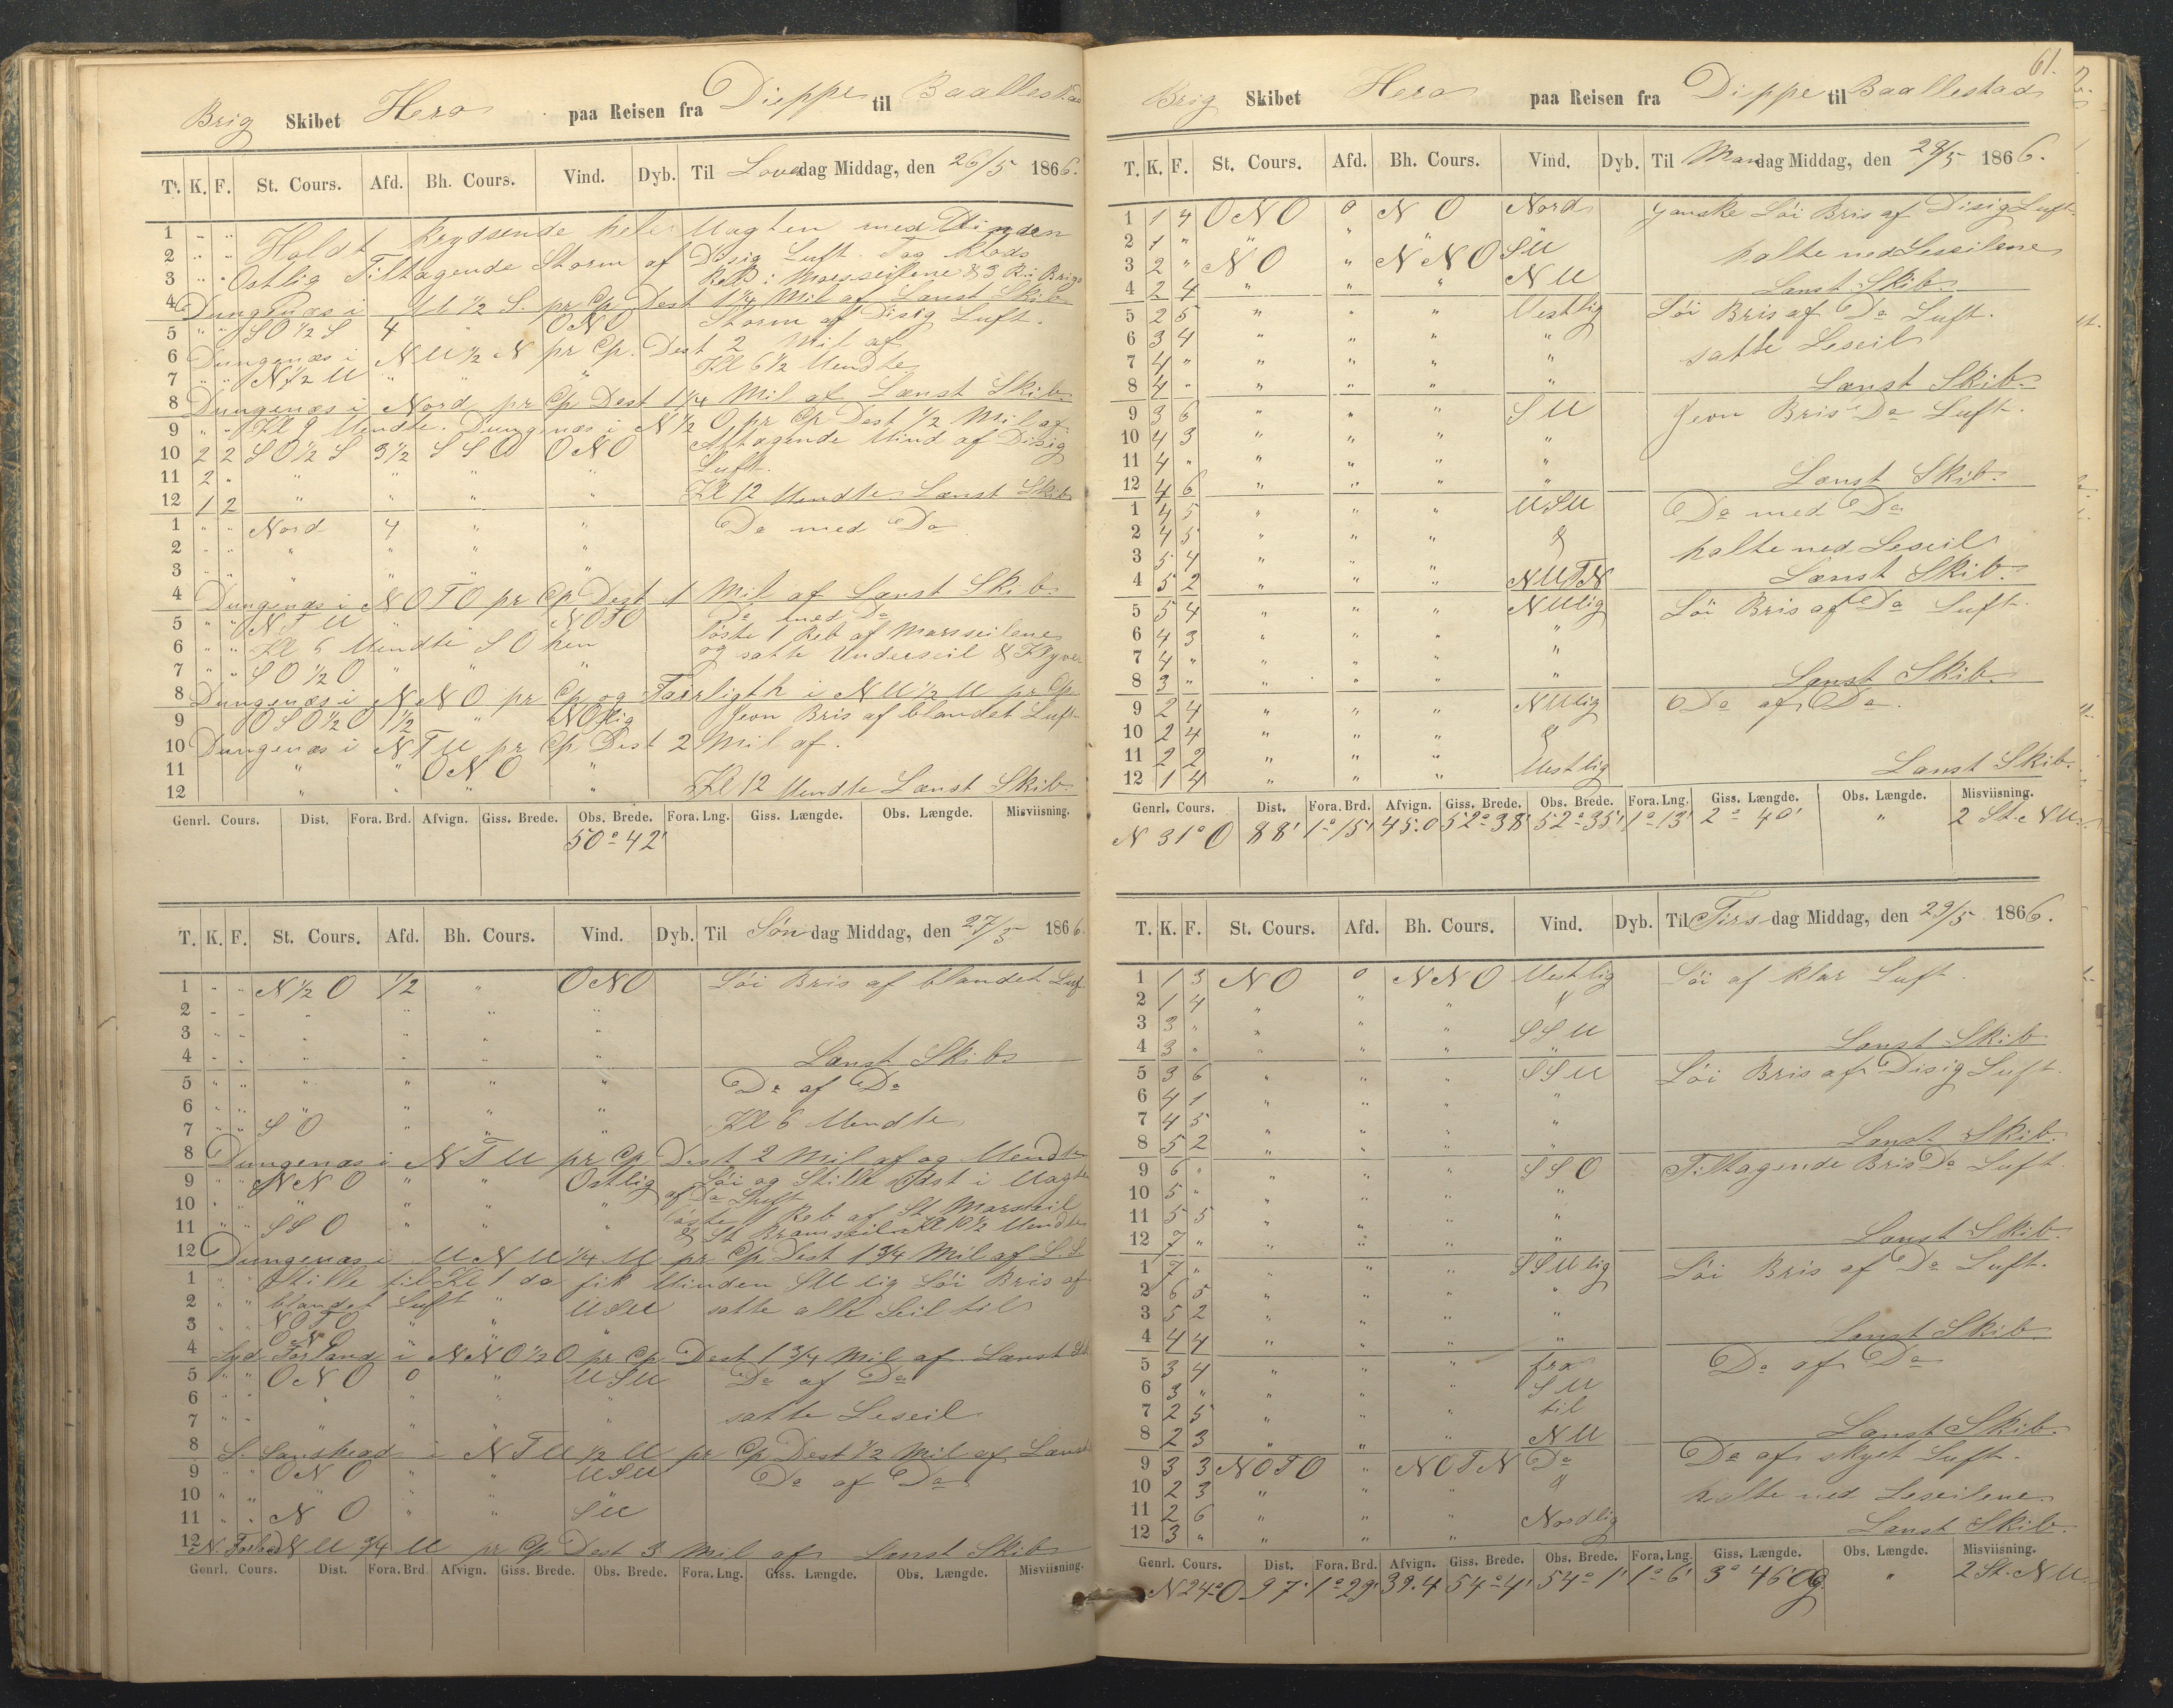 Brig Skibet Hero paa Reisen fra Dieppe til Baallestad
T. K. F. St. Cours. Afd. Bh. Cours. Vind. Dyb. Til Løverdag Middag, den 26/5 1866.
1 " " Holdt krydsende hele Vagten med Vinden
2 " " Ostlig Tiltagende Storm af Disig Luft Tog Klods
3 " " Reb i Mersseilene & 3 R i Brigs
4 Dungenæs i V 1/2 S. pr Cp Dest 1 1/4 Mil af Lænst Skib
5 " " SO 1/2 S 4 " ONO Storm af Disig Luft.
6 Dungenæs i NV 1/2 N pr Cp. Dest 2 Mil af
7 " " N 1/2 V " " " Kl 6 1/2 Vendte
8 Dungenæs i Nord pr Cp Dest 1 1/4 Mil af Lænst Skib
9 " " Kl 9 Vendte. Dungenæs i N 1/2 O pr Cp Dest 1/2 Mil af
10 2 2 SO 1/2 S 3 1/2 SSO ONO Aftagende Vind af Disig
11 2 " " " " " Luft.
12 1 2 " " " " Kl 12 Vendte Lænst Skib
1 " " Nord 4 " " Do med Do
2 " " " " " "
3 " " " " " "
4 Dungenæs i NOTO pr Cp Dest 1 Mil af Lænst Skib
5 " " NTV " NOTO Do med Do
6 " " Kl 6 Vendte SO hen løste 1 Reb af Mersseilene
7 " " SO 1/2 O " " " og satte Underseil & Klyver
8 Dungenæs i NNO pr Cp og Fairligth i NV 1/2 V pr Cp
9 OSO 1/2 O 1 1/2 " NOlig Jevn Bris af blandet Luft
10 Dungenæs i NTV pr Cp Dest 2 Mil af.
11 " " ONO "
12 " " " " Kl 12 Vendte Lænst Skib
Genrl. Cours. Dist. Fora. Brd. Afvign. Giss. Brede. Obs. Brede. Fora. Lng. Giss. Længde. Obs. Længde. Misviisning.
50° 42'
T. K. F. St. Cours. Afd. Bh. Cours. Vind. Dyb. Til Søndag Middag, den 27/5 1866.
1 " " N 1/2 O 1/2 " ONO Löi Bris af blandet Luft
2 " " " " " "
3 " " " " " "
4 " " " " " " Lænst Skib
5 " " " " " " Do af Do
6 " " " " " "
7 " " SO " " " Kl 6 Vendte
8 Dungenæs i NTV pr Cp Dest 2 Mil af og Vendte
9 " " NNO " " Ostlig Löi og Stille sidst i Vagten
10 " " " " " af Do Luft
11 " " SSO " " " løste 1 Reb af St Marsseil
& St Bramseil Kl 10 1/2 Vendte
12 Dungenæs i VNV 1/4 V pr Cp Dest 1 3/4 Mil af L. S
1 " " Stille til Kl 1 da fik Vinden SV lig Löi Bris af
2 " " blandet Luft " VSV satte alle Seil til
3 " " NOTO " "
4 ONO " "
Syd Forland i NNO 1/2 O pr Cp Dest 1 3/4 Mil af Lænst Sk
5 " " ONO 0 " VSV Do af Do
6 " " " " " "
7 " " " " " " satte Leseil
8 S. Sanshead i NTV 1/2 V pr Cp Dest 1/2 Mil af Lænst
9 " " ONO " " VSV Do af Do
10 " " " " "
11 " " NO " " SV
12 N. Forland NV 3/4 V pr Cp Dest 3 Mil af Lænst Skib
Genrl. Cours. Dist. Fora. Brd. Afvign. Giss. Brede. Obs. Brede. Fora. Lng. Giss. Længde. Obs. Længde. Misviisning.
61.
Brig Skibet Hero paa Reisen fra Dieppe til Baallestad
T. K. F. St. Cours. Afd. Bh. Cours. Vind. Dyb. Til Mandag Middag, den 28/5 1866.
1 1 4 ONO 0 NO Nord ganske Löi Bris af Disig Luft
2 1 " " " " SV halte ned Leseilene
3 2 " NO " NNO NV
4 2 4 " " " Lænst Skib
5 2 5 " " " Vestlig Löi Bris af Do Luft.
6 3 4 " " " " satte Leseil
7 4 " " " " "
8 4 " " " " " Lænst Skib
9 3 6 " " " SV Jevn Bris Do Luft.
10 4 3 " " " "
11 4 " " " " "
12 4 6 " " " " Lænst Skib.
1 4 5 " " " VSV Do med Do
2 4 5 " " " & halte ned Leseil
3 5 4 " " "
4 5 2 " " " NVTN Lænst Skib.
5 5 4 " " " NVlig Löi Bris af Do Luft.
6 4 3 " " " "
7 4 " " " " "
8 3 " " " " " Lænst Skib
9 2 4 " " " NVlig Do af Do.
10 2 4 " " " &
11 2 2 " " " Vestlig
12 1 4 " " " Lænst Skib.
Genrl. Cours. Dist. Fora. Brd. Afvign. Giss. Brede. Obs. Brede. Fora. Lng. Giss. Længde. Obs. Længde. Misviisning.
N 31° O 88' 1° 15' 45.0 52° 38' 52° 35' 1° 13' 2° 40' " 2 St. NV.
T. K. F. St. Cours. Afd. Bh. Cours. Vind. Dyb. Til Tirsdag Middag, den 29/5 1866.
1 1 3 NO 0 NNO Vestlig Löi af klar Luft.
2 1 4 " " " "
3 3 " " " " SSV
4 3 " " " " " Lænst Skib
5 3 6 " " " SSV Löi Bris af Disig Luft.
6 4 1 " " " "
7 4 5 " " " "
8 5 2 " " " " Lænst Skib.
9 6 " " " " SSO Tiltagende Bris Do Luft.
10 5 " " " " "
11 5 5 " " " "
12 7 " " " " Lænst Skib.
1 7 " " " " SSVlig Löi Bris af Do Luft.
2 6 5 " " " "
3 5 2 " " " "
4 4 4 " " " " Lænst Skib
5 3 4 " " " fra Do af Do
6 3 " " " " SV
7 2 5 " " " til
8 2 3 " " " NV Lænst Skib.
9 3 3 NOTO " NOTN Do Do af skyet Luft.
10 2 3 " " " & halte ned Leseilene
11 2 6 " " " Nordlig
12 3 " " " " Lænst Skib.
Genrl. Cours. Dist. Fora. Brd. Afvign. Giss. Brede. Obs. Brede. Fora. Lng. Giss. Længde. Obs. Længde. Misviisning.
N 24° O 97' 1° 29' 39.4 54° 4' 54° 1' 1° 6' 3° 46 Og " 2 St. NV.